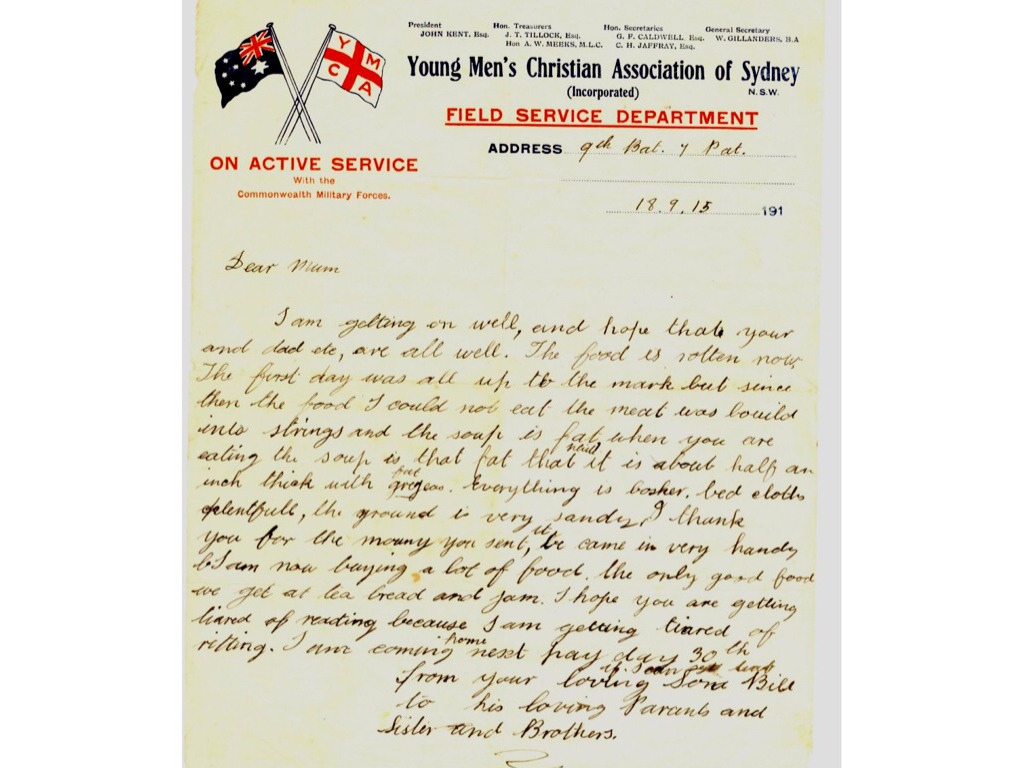 President
JOHN KENT, Esq.
Hon. Treasurers
J. T. TILLOCK, Esq.
Hon A. W. MEEKS, M.L.C.
Hon. Secretaries
G. F. CALDWELL, Esq.
C. H. JAFFRAY, Esq.
General Secretary
W. GILLANDERS, B.A
Y M
C A
Young Men's Christian Association of Sydney
(Incorporated)
N.S.W.
FIELD SERVICE DEPARTMENT
ON ACTIVE SERVICE
With the
Commonwealth Military Forces.
ADDRESS 9th Bat. 7 Pat.
18.9.15 191
Dear Mum
I am getting on well, and hope that your
and dad etc, are all well. The food is rotten now.
The first day was all up to the mark but since
then the food I could not eat the meat was bouild
into strings and the soup is fat when you are
eating the soup is that fat that it is about half an
inch thick with fat gregeas. Everything is bosker. bed cloths
plentfull, the ground is very sandy, I thank
you for the mouny you sent, it came in very handy
I am now buying a lot of food. the only good food
we get at tea bread and jam. I hope you are getting
tiared of reading because I am getting tiared of
ritting. I am coming home next pay day 30th
from your loving Son Bill
to his loving Parants and
Sister and Brothers.